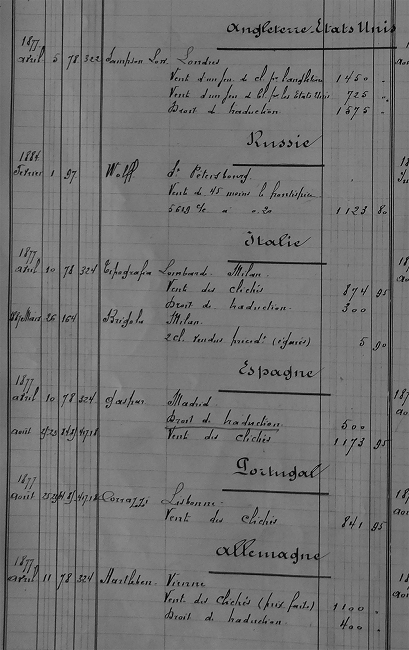 Angleterre Etats Unis
1877
Avril 5 78 322 Sampson Low Londres
Vente d'un jeu de cl. pr l'angleterre 1450 "
Vente d'un jeu de cl pr les Etats Unis 725 "
Droit de traduction 1575 "
Russie
1884
Fevrier 1 97 Wolff St Petersbourg
Vente de 45 moins le frontispice
5619 c/c à 0.20 1123 80
Italie
1877
Avril 10 78 324 Tipografia Lombarda Milan
Vente des clichés 874 95
Droit de traduction 300
Mars 26 164 Brigola Milan
2 cl. vendus précédt (égarés) 5 90
Espagne
1877
Avril 10 78 324 Gaspar Madrid
Droit de traduction 500
Août Vente des clichés 1173 95
Portugal
1877
Août Corrazzi Lisbonne
Vente des clichés 841 95
Allemagne
1877
Avril 11 78 324 Hartleben Vienne
Vente des clichés (prix faits) 1100 "
Droit de traduction 400 "